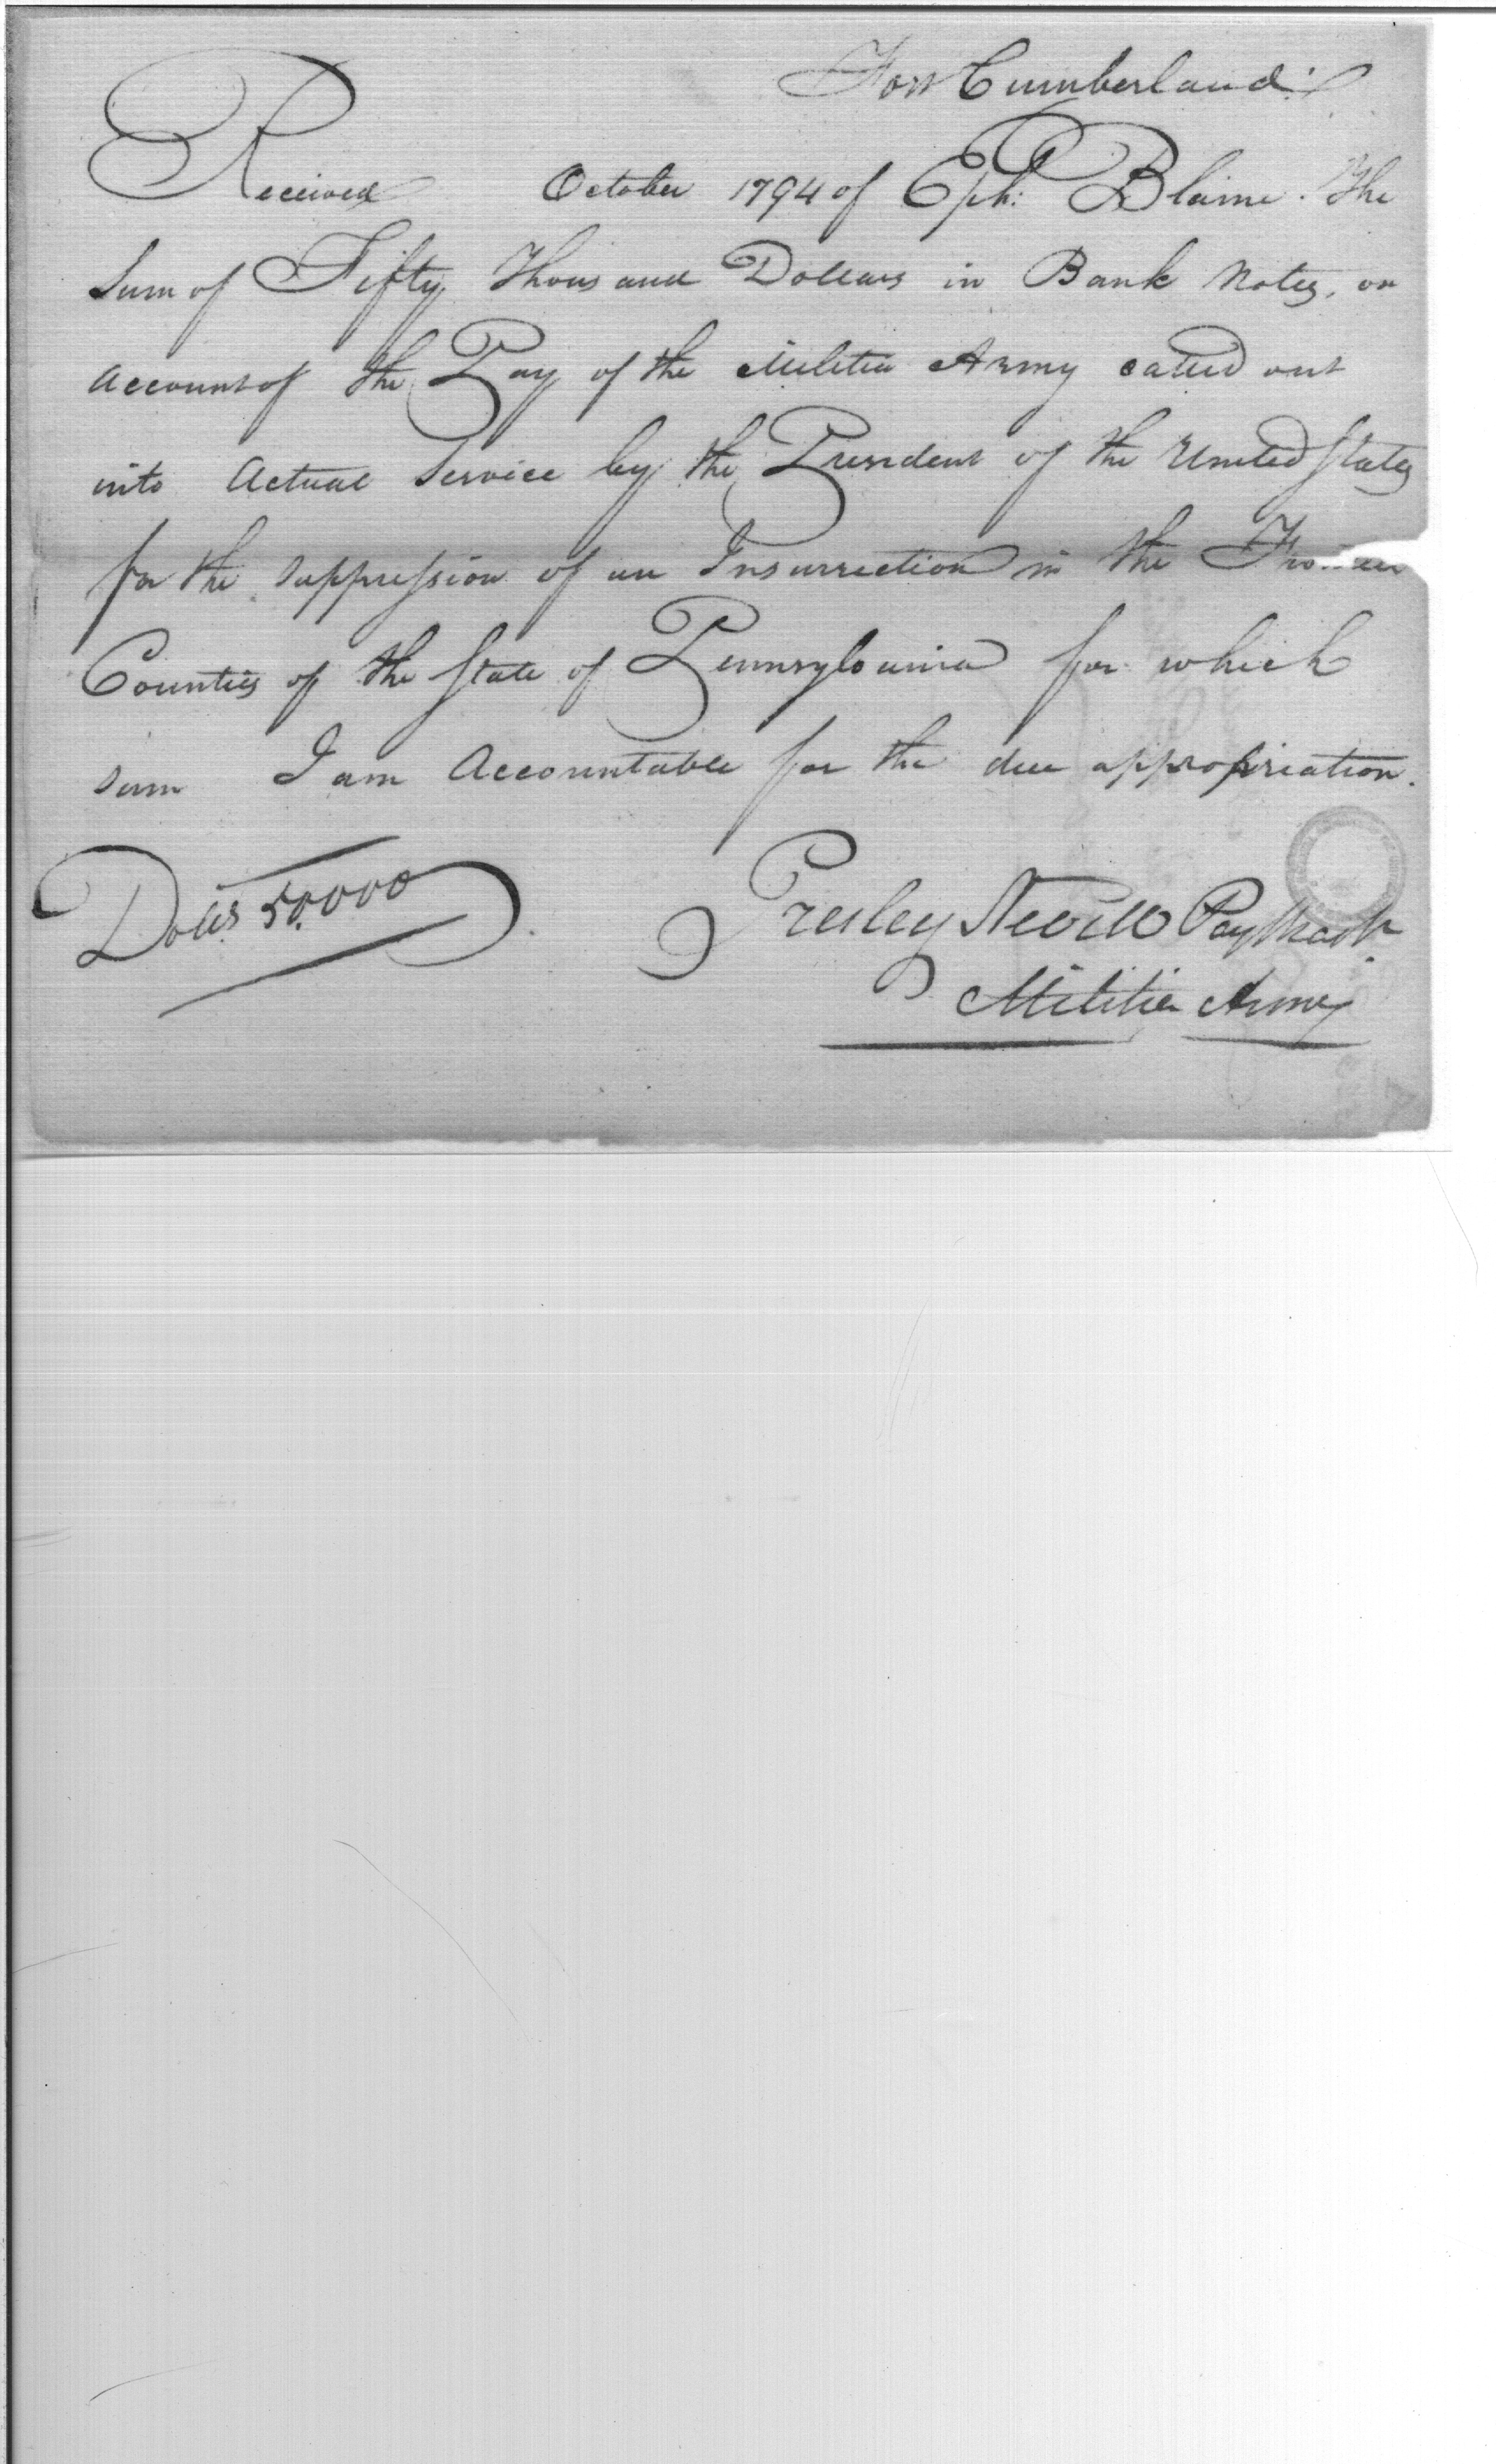 Fort Cumberland
Received October 1794 of Eph: Blaine. The
Sum of Fifty Thousand Dollars in Bank Notes, on
account of the Pay of the Militia Army called out
into Actual Service by the President of the United States
for the suppression of an Insurrection in the
Counties of the State of Pennsylvania for which
sum I am Accountable for the due appropriation.
Dolls 50.000 Presley Nevill PayMastr
Militia Army